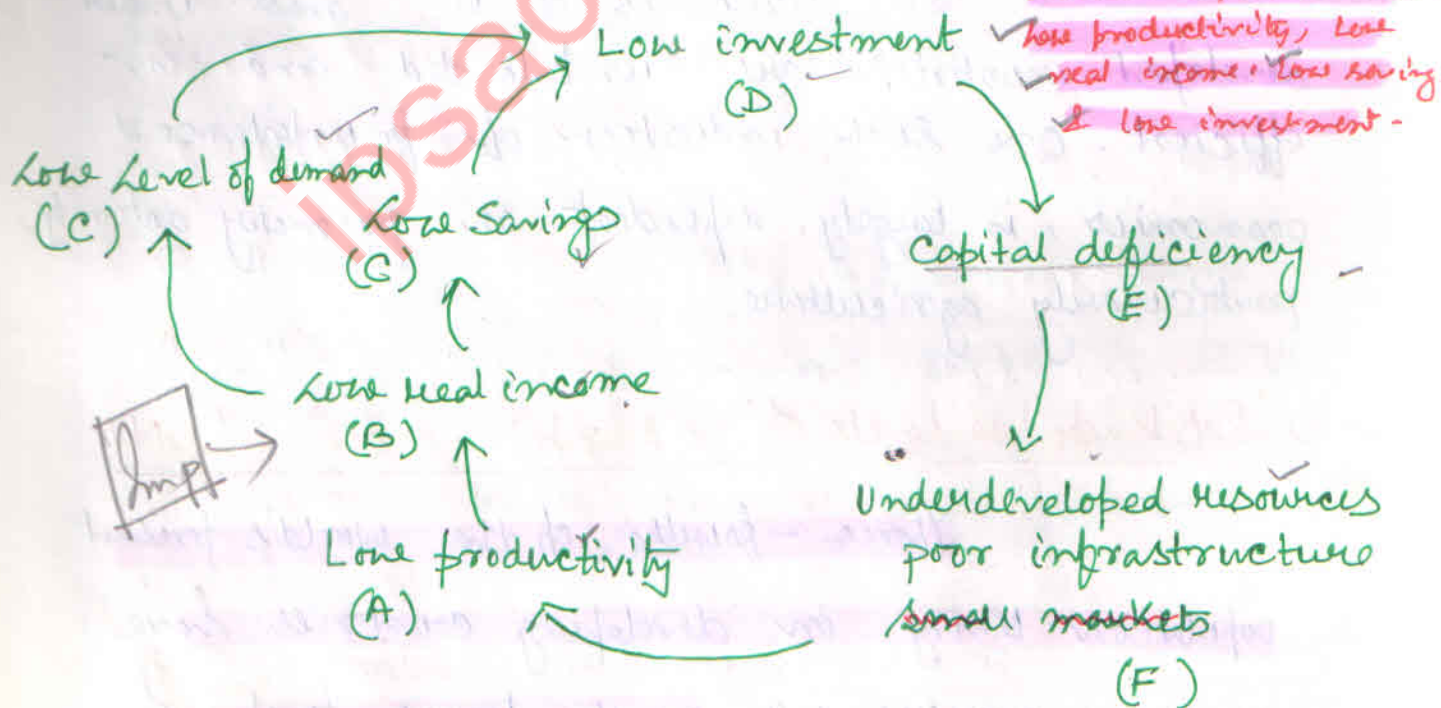 Low investment
(D)
Low productivity, Low
real income. Low saving
& low investment.
Low Level of demand
(C)
Low Savings
(G)
Capital deficiency
(E)
Low real income
(B)
Imp
Underdeveloped resources
poor infrastructure
small markets
(F)
Low productivity
(A)
ipsac